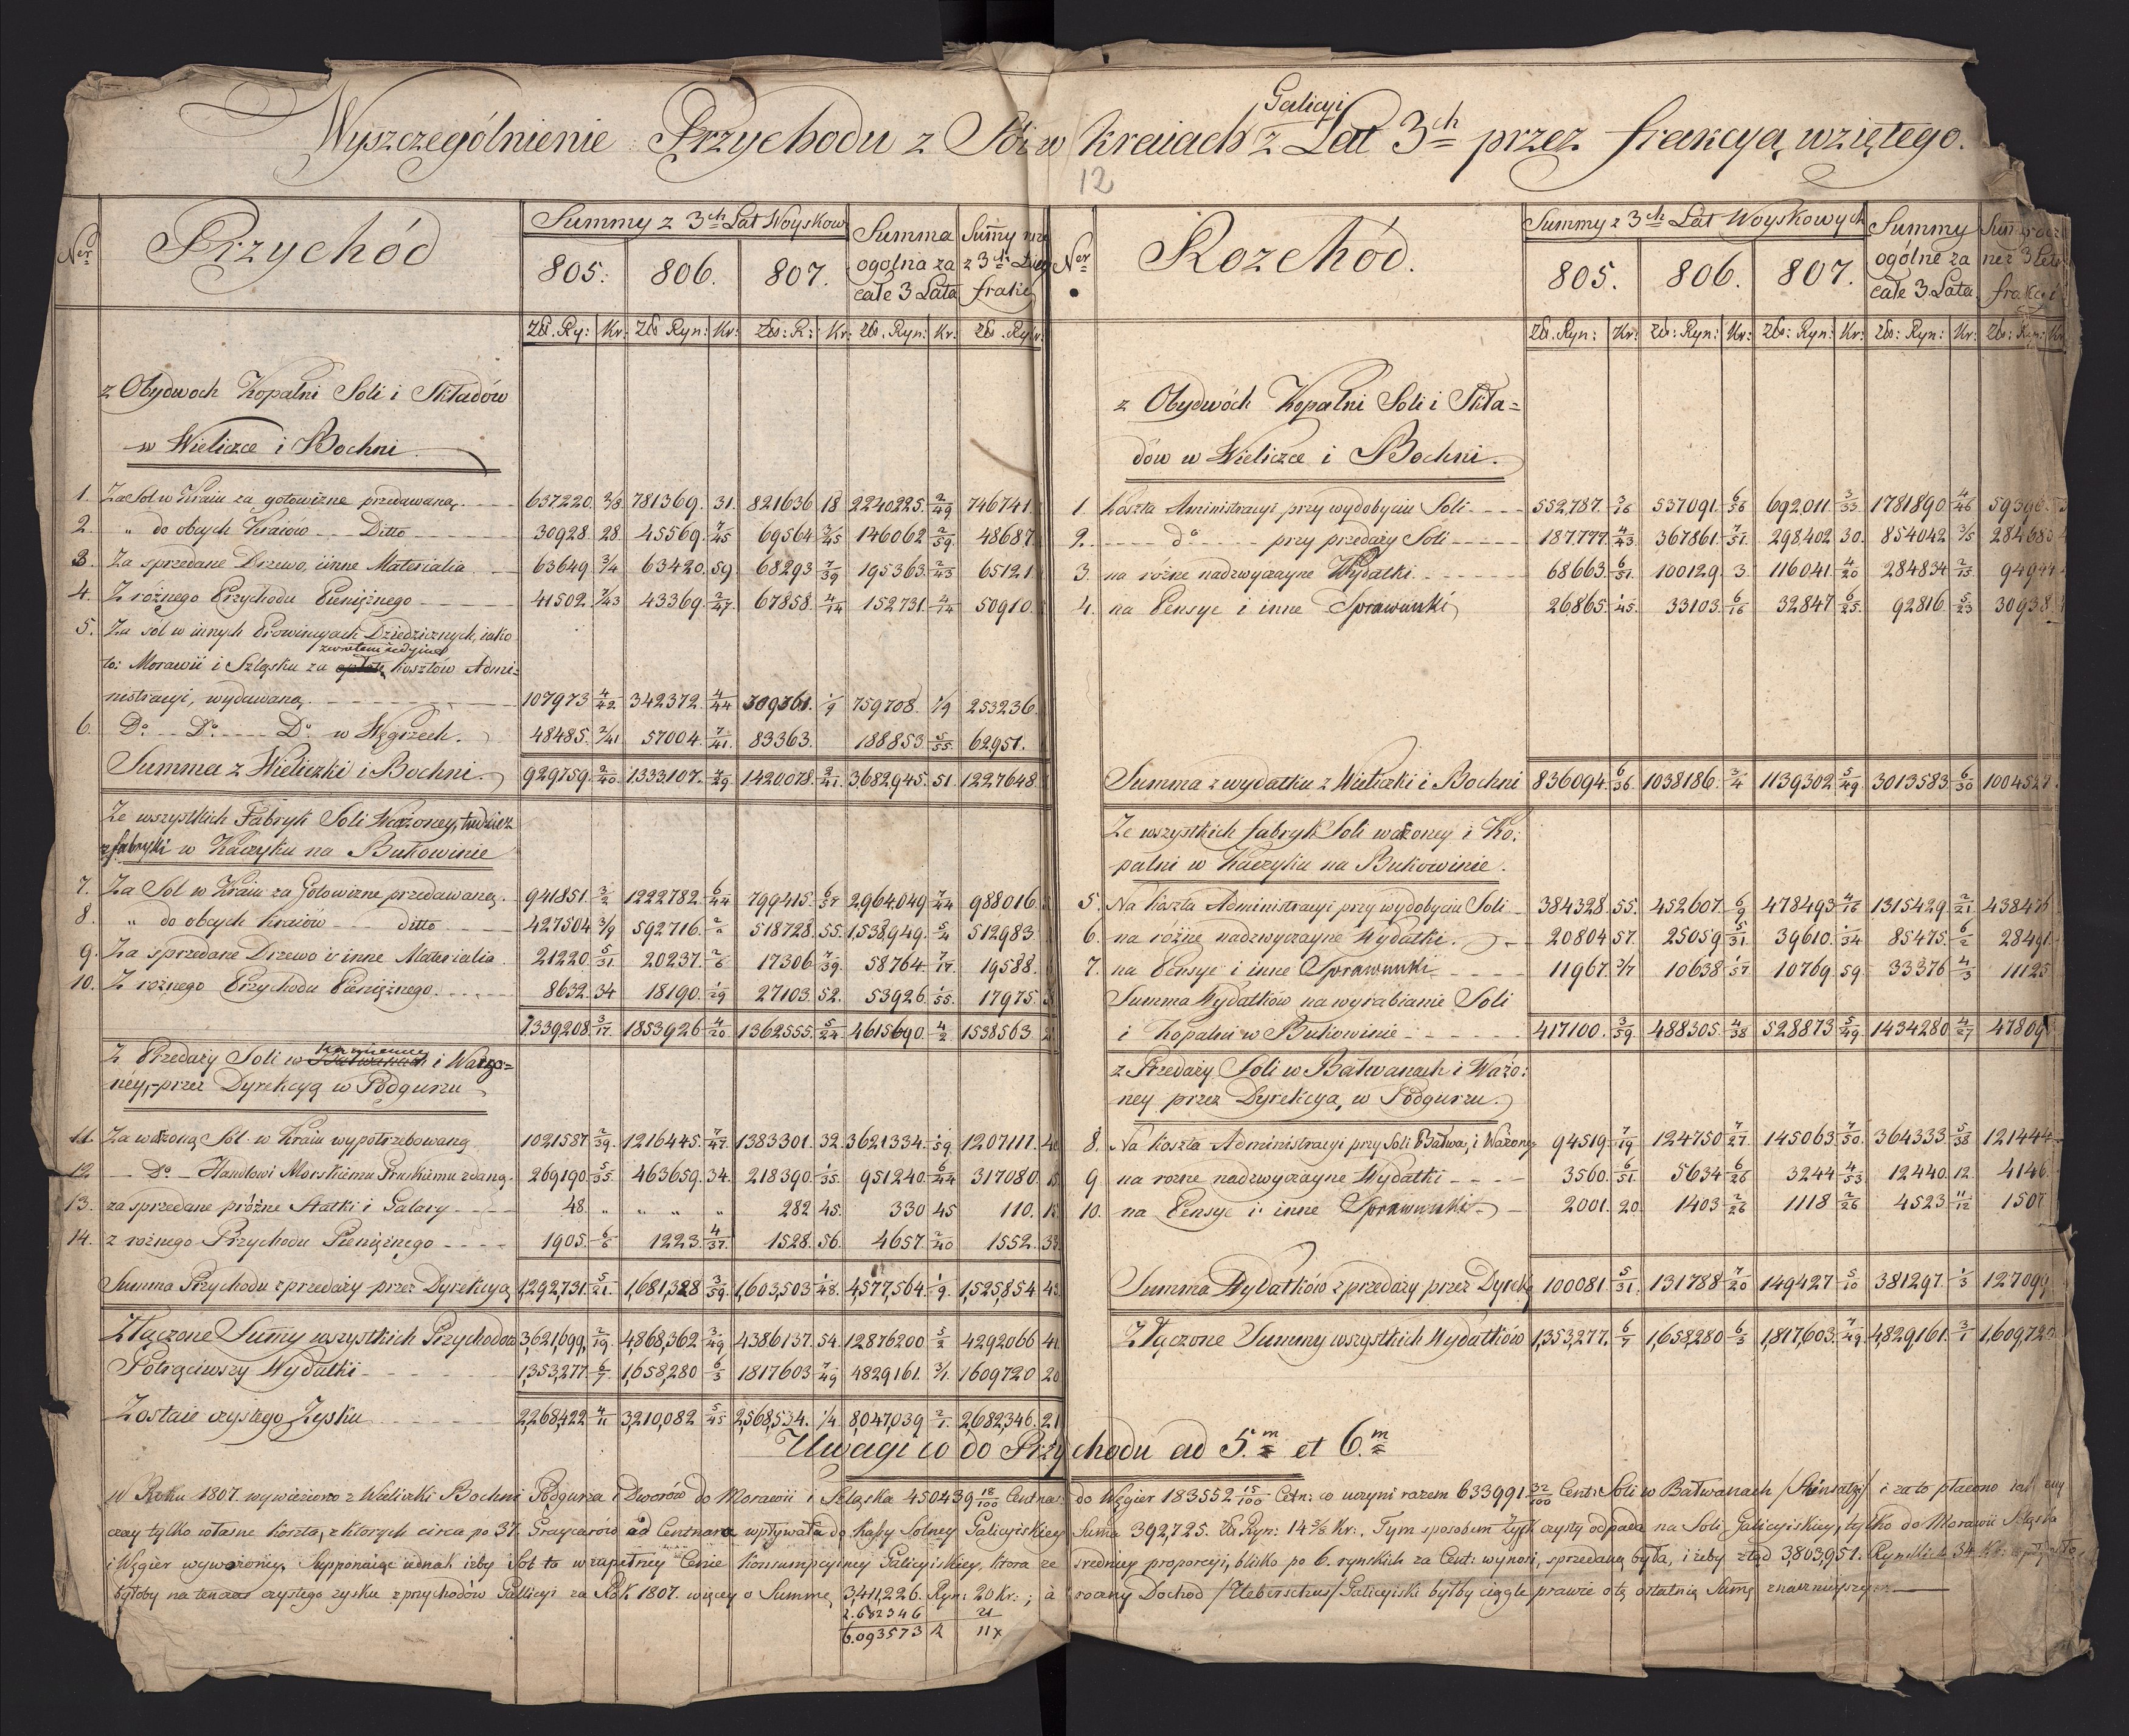 Galicyi
Wyszczególnienie Przychodu z Soli w kraiach z Lat 3ch przez frakcyą wziętego.
12
Ner Przychód
Summy z 3ch Lat Woyskow
805. 806. 807.
Summa ogolna za całe 3 Lata
z 3ch frakc
Złł. Ry: Kr: Złł Ryn: Kr: Złł: R: Kr: Złł. Ryn: Kr: Złł. Ryn:
z Obydwoch Kopalni Soli i Składów
w Wieliczce i Bochni
1. Za Sol w Kraiu za gotowizne przedawaną 637220. 781369. 31. 821636 18 2240225. 2/49 746741.
2. " do obcych Kraiow Ditto 30928. 28. 45569. 7/45 69564. 146062 2/59. 48687
3. Za sprzedane Drzewo, i inne Materialia 63649. 3/4 63420. 59 68293 7/39 195363. 2/43 65121
4. Z różnego Przychodu Pieniężnego 41502. 43369. 2/47 67858. 4/14 152731. 4/14 50910.
5. Za sól w innych Prowincyach Dziedzicznych, iako
to: Morawii i Szląsku za kosztów Admi=
nistracyi, wydawaną 107973 4/42 342372. 4/44 309361. 1/9 759708. 1/9 253236.
6. Do Do Do w Węgrzech. 48485. 57004. 7/41. 83363. 188853. 5/55. 62951.
Summa z Wieliczki i Bochni 929759. 2/40. 1333107. 1420078. 2/21. 3,682,945. 51. 1227648
Ze wszystkich Fabryk Soli Warzoney, tudzież
z fabryki w Kaczyku na Bukowinie
7. Za Sol w Kraiu za Gotowizne przedawaną. 941851. 3/2 1222782. 6/44 799415. 2964049 7/44 988016
8. " do obcych kraiow ditto 427504 3/9 592716. 518728. 55. 1,538,949. 5/4 512983.
9. Za sprzedane Drzewo i inne Materialia 21220. 5/31 20237. 2/6 17306 7/39. 58764 7/17. 19588.
10. Z rożnego Przychodu Pieniężnego. 8632. 34 18190. 1/29 27103. 52. 53926. 1/55. 17975.
1339208 3/17. 1853926 4/20 1362555. 5/24 4615690. 4/2. 1538563
Z Przedaży Soli w kamienney i Warzo=
ney, przez Dyrekcyą w Podgurzu
11. Za warzoną Sol w Kraiu wypotrzebowaną 1021587 2/39. 1216445. 7/47 1383301. 32. 3621334. 1/59. 1207111.
12. Do Handlowi Morskiemu Pruskiemu zdaną. 269190. 5/35 463659. 34. 218390. 1/35. 951240. 6/44 317080.
13. za sprzedane próżne Statki i Galary 48. " " " " 282 45. 330 45 110.
14. z rożnego Przychodu Pieniężnego 1905. 6/6 1223. 4/37. 1528. 56. 4657. 2/40 1552. 33.
Summa Przychodu z przedaży przez Dyrekcyą 1,292,731. 5/21. 1,681,328 3/59. 1,603,503 1/48. 4,577,564. 1/9. 1,525,854 43.
Złączone Sumy wszystkich Przychodow 3,621,699. 2/19. 4,868,362 3/49 4386137. 54. 12876200 5/2 4292066 41.
Potrąciwszy Wydatki 1,353,277 6/7 1,658,280 6/3 1817603 7/49 4829161. 3/1. 1609720 20
Zostaie czystego Zysku 2,268,422 4/11 3,210,082 5/45 2,568,534. 1/4. 8,047,039 2/1. 2,682,346. 21
Ner Rozchód.
Summy z 3ch Lat Woyskowych
805. 806. 807.
Summy ogólne za całe 3. Lata
frakcyi
Złł. Ryn: Kr: Złł: Ryn: Kr: Złł: Ryn: Kr: Złł: Ryn: Kr: Złł: Ryn: Kr
z Obydwóch Kopalni Soli i Skła=
dów w Wieliczce i Bochni.
1. Koszta Aministracyi przy wydobyciu Soli 552,787. 3/16 537091. 6/56 692,011. 3/33. 1781890. 4/46
2. do przy przedaży Soli 187777. 4/43. 367861. 7/51. 298402 30. 854042 3/5
3. na rożne nadzwyczayne Wydatki. 68663. 6/51. 100129. 3. 116041. 4/20 284834 2/15
4. na Pensye i inne Sprawunki 26865. 1/45. 33103. 6/16 32847 6/25. 92816. 5/23 30938
Summa z wydatku z Wieliczki i Bochni 836094. 6/36. 1038186. 3/4 1139302 5/49. 3013583. 6/30
Ze wszystkich fabryk Soli warzoney i Ko:
palni w Kaczyku na Bukowinie.
5. Na Koszta Administracyi przy wydobyciu Soli 384328. 55. 452607. 6/9 478493. 4/16 1315429. 2/21
6. na rożne nadzwyczayne Wydatki. 20804 57. 25059 5/31. 39610. 1/34 85475. 6/2 28491
7. na Pensye i inne Sprawunki 11967. 3/7 10638 1/57 10769. 59. 33376 4/3 11125
Summa Wydatków na wyrabianie Soli
i Kopalni w Bukowinie 417100. 3/59. 488305. 4/38 528873 5/49. 1434280 4/27
z Przedaży Soli w Bałwanach i Warzo:
ney przez Dyrekcya, w Podgurzu.
8. Na Koszta Administracyi przy Soli Bałwa, i Warzoney 94519. 7/19 124750 7/27. 145063 7/50. 364333. 5/38 121444
9. na rozne nadzwyczayne Wydatki 3560. 6/51. 5634 6/26 3244 4/53 12440. 12. 4146
10. na Pensye i inne Sprawunki 2001. 20. 1403 2/26 1118 2/26 4523 11/12 1507
Summa Wydatków z przedaży przez Dyrekcy 100081. 5/31. 131788 7/20 149427 5/10 381297. 1/3 127099
Złączone Summy wszystkich Wydatków 1,353,277. 6/7 1,658,280 6/3 1,817,603. 7/49. 4,829,161. 3/1 1,609,720
Uwagi co do Przychodu ad 5.m et 6.m
W Roku 1807. wywieziono z Wieliczki Bochni Podgurza i Dworów do Morawii i Szląska 450439 18/100 Centnar: do Węgier 183552 15/100 Cetn: co uczyni razem 633991 32/100 Cent: Soli w Bałwanach i za to płacono
czay tylko własne Koszta, z ktorych circa po 37. Graycarów ad Centnara wpływała do Kaßy Solney Galicyiskiey Suma 392,725. Złł. Ryn: 14 3/8 Kr:. Tym sposobem Zysk czysty odpada na Soli Galicyiskiey, tylko do Morawii Szląska
i Węgier wywożoney. Supponaiąc iednak iżby Sol ta w zupełney Cenie Konsumpcyiney Galicyiskiey, ktora ze sredniey proporcyi, blisko po 6. rynskich za Cent: wynosi, sprzedaną była, i żeby ztąd 3,803,951. Rynskich 34 Kr.
byłoby na tenczas czystego zysku z przychodów Gallicyi za Rok 1807. więcey o Summę 3,411,226. Ryn: 20 Kr:; à roczny Dochod /Ueberschus/ Galicyiski byłby ciągle prawie o tę ostatnią Sumę znacznieyszym
2.682346 21
6.093573 11x